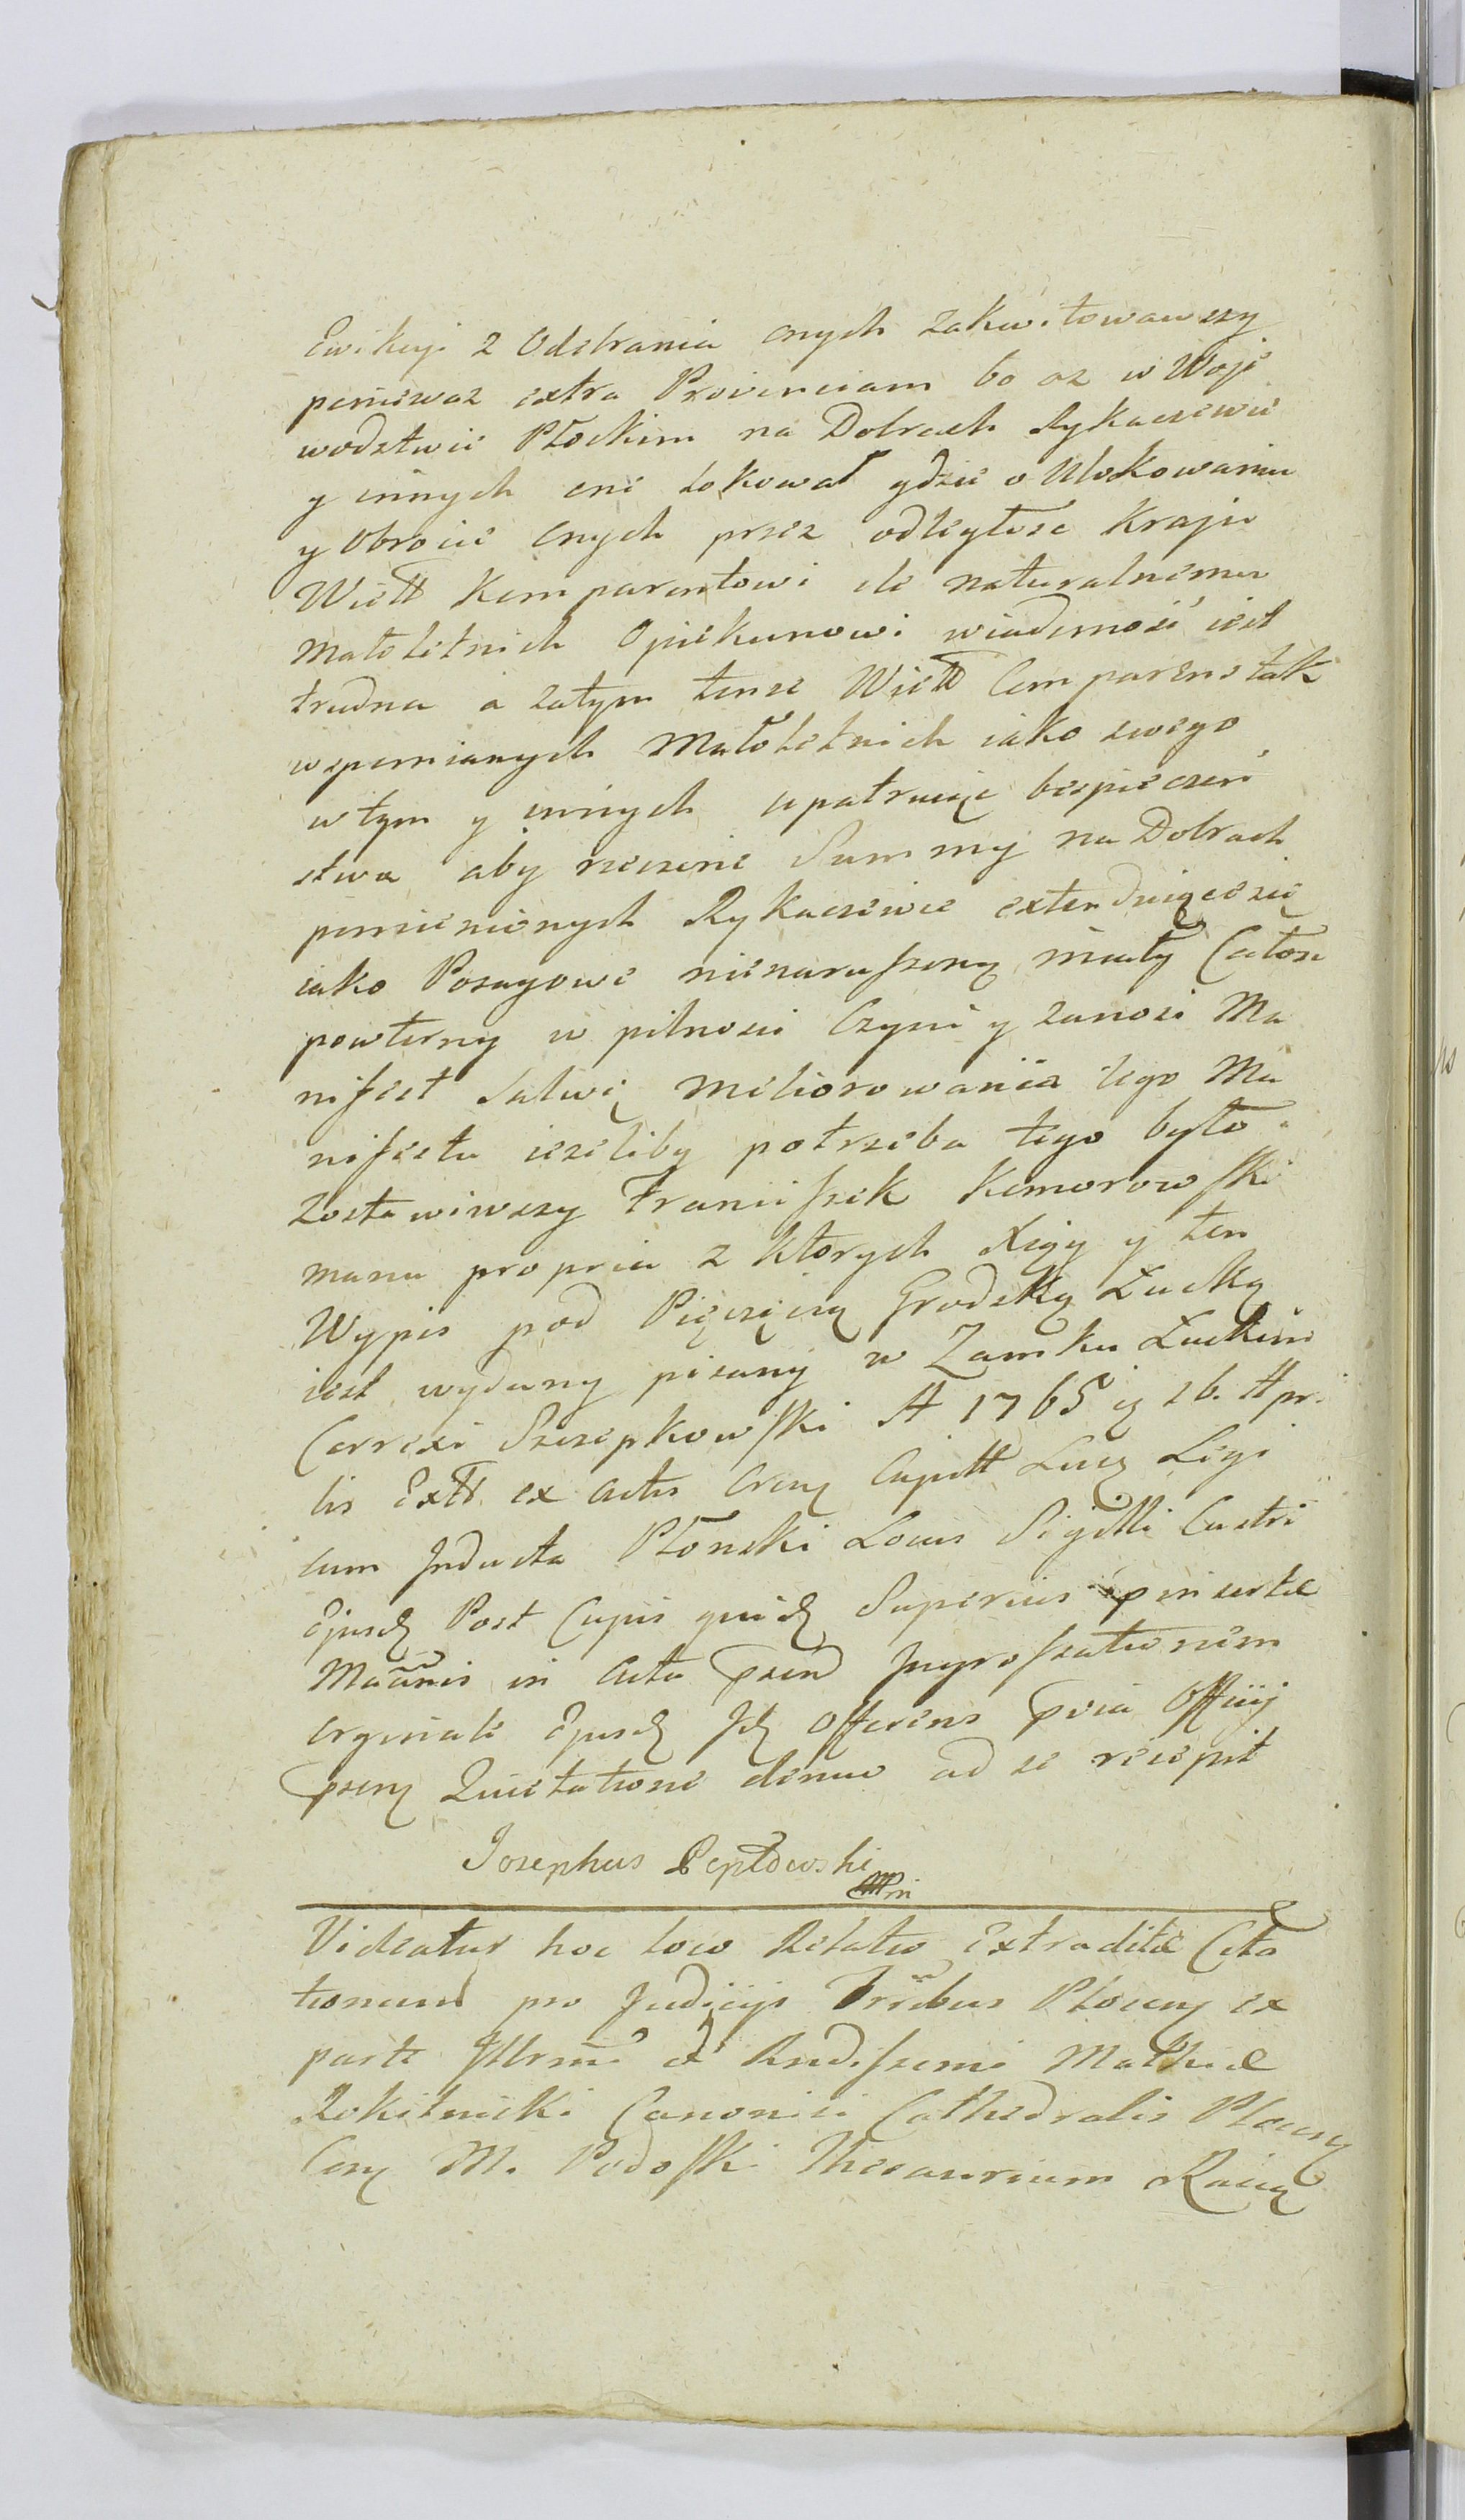 Ewikcyi z Odebrania onych zakwitowawszy
poniewaz extra Provinciam bo az w Woje
wodztwie Płockim na Dobrach Rykaczewie
y innych one lokował gdzie o Ulokowaniu
y Obrocie onych przez odległosc Kraju
Wiell Komparentowi ile naturalnemu
Małoletnich Opiekunowi wiadomosć iest
trudna a zatym tenze Wiell Comparens tak
wspomnianych Małoletnich iako swego
w tym y innych upatruiąc bespieczeń
stwa aby rzeczone Summy na Dobrach
pomienionych Rykaczewie extenduiące się
iako Posagowe nienaruszoną miały Całosc
powtorny w pilnosci Czyni y zanosi Ma
nifest Salwę meliorowania tego Ma
nifestu iezeliby potrzeba tego było
zostawiwszy Franciszek Komorowski
manu propria z ktorych Xiąg y ten
Wypis pod Pięczęcią Grodską Łucką
iest wydany pisany w Zamku Łuckim
Correxi Szczepkowski A 1765 ią 26. Apri
lis Extt ex Actis Cren Capitt Luc Legi
cum Inducta Płonski Locus Sigilli Castri
Ejusd Post Cujus quid Superius insertæ
Maanis in Acta psend Ingrossationem
orginale Ejusd Id Offerens pvia Officij
psen Quietatione denuo ad se recepit
Josephus Peptowski
mp
Videatur hoc loco Relatio Extraditæ Cita
tionum pro Judicijs Trribus Plocen ex
parte Illrmi et Rndissimi Mathiæ
Rokitnicki Canonici Cathedralis Plocen
Con M. Podoski Thesaurium Racią